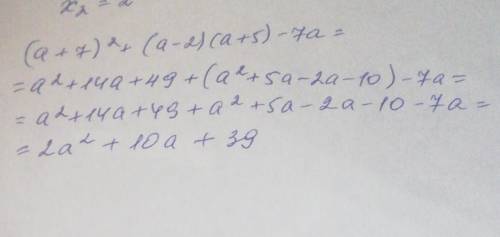 x₂ = 2
(a+7)²+(a-2)(a+5)-7a=
=a²+14a+49+(a²+5a-2a-10)-7a=
=a²+14a+49+a²+5a-2a-10-7a=
=2a²+10a+39